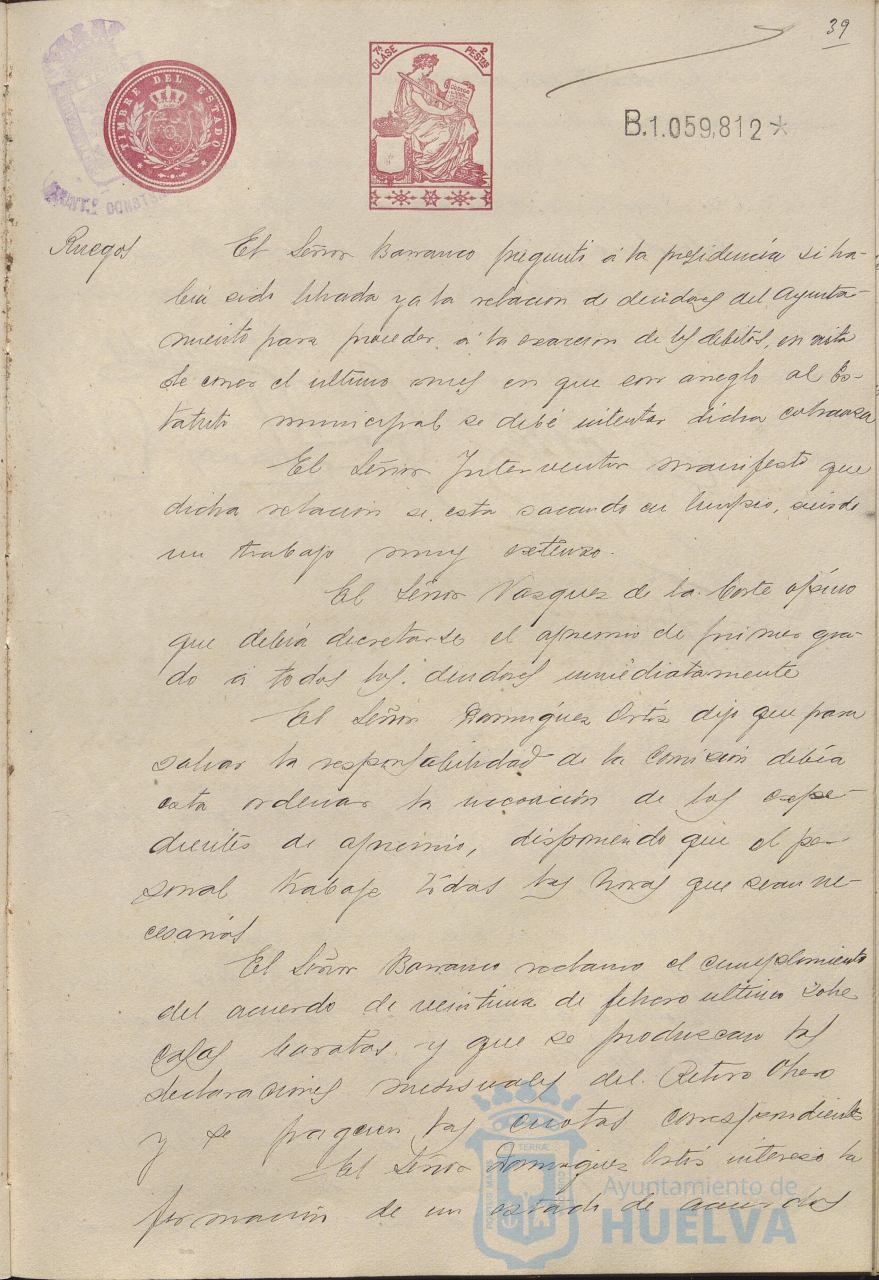 39
TIMBRE DEL ESTADO
7ª CLASE
2 PESTAS
B.1.059,812*
AYUNT.
Ruegos
El Señor Barranco preguntó á la presidencia si ha-
bia sido librada ya la relacion de deudores del Ayunta-
miento para proceder á la exaccion de los debitos, en vista
de correr el ultimo mes en que con arreglo al Es-
tatuto municipal se debe intentar dicha cobranza
El Señor Interventor manifestó que
dicha relacion se esta sacando en limpio, siendo
un trabajo muy extenso.
El Señor Vazquez de la Corte opino
que debia decretarse el apremio de primer gra-
do á todos los deudores inmediatamente
El Señor Dominguez Ortiz dijo que para
salvar la responsabilidad de la Comisión debia
esta ordenar la incoación de los expe-
dientes de apremio, disponiendo que el per-
sonal trabaje todas las horas que sean ne-
cesarias
El Señor Barranco reclamo el cumplimiento
del acuerdo de veintiuno de febrero ultimo sobre
casas baratas y que se produzcan las
declaraciones mensuales del Retiro Obrero
y se paguen las cuotas correspondientes
El Señor Dominguez Ortiz intereso la
formación de un estado de acuerdos
Ayuntamiento de
HUELVA